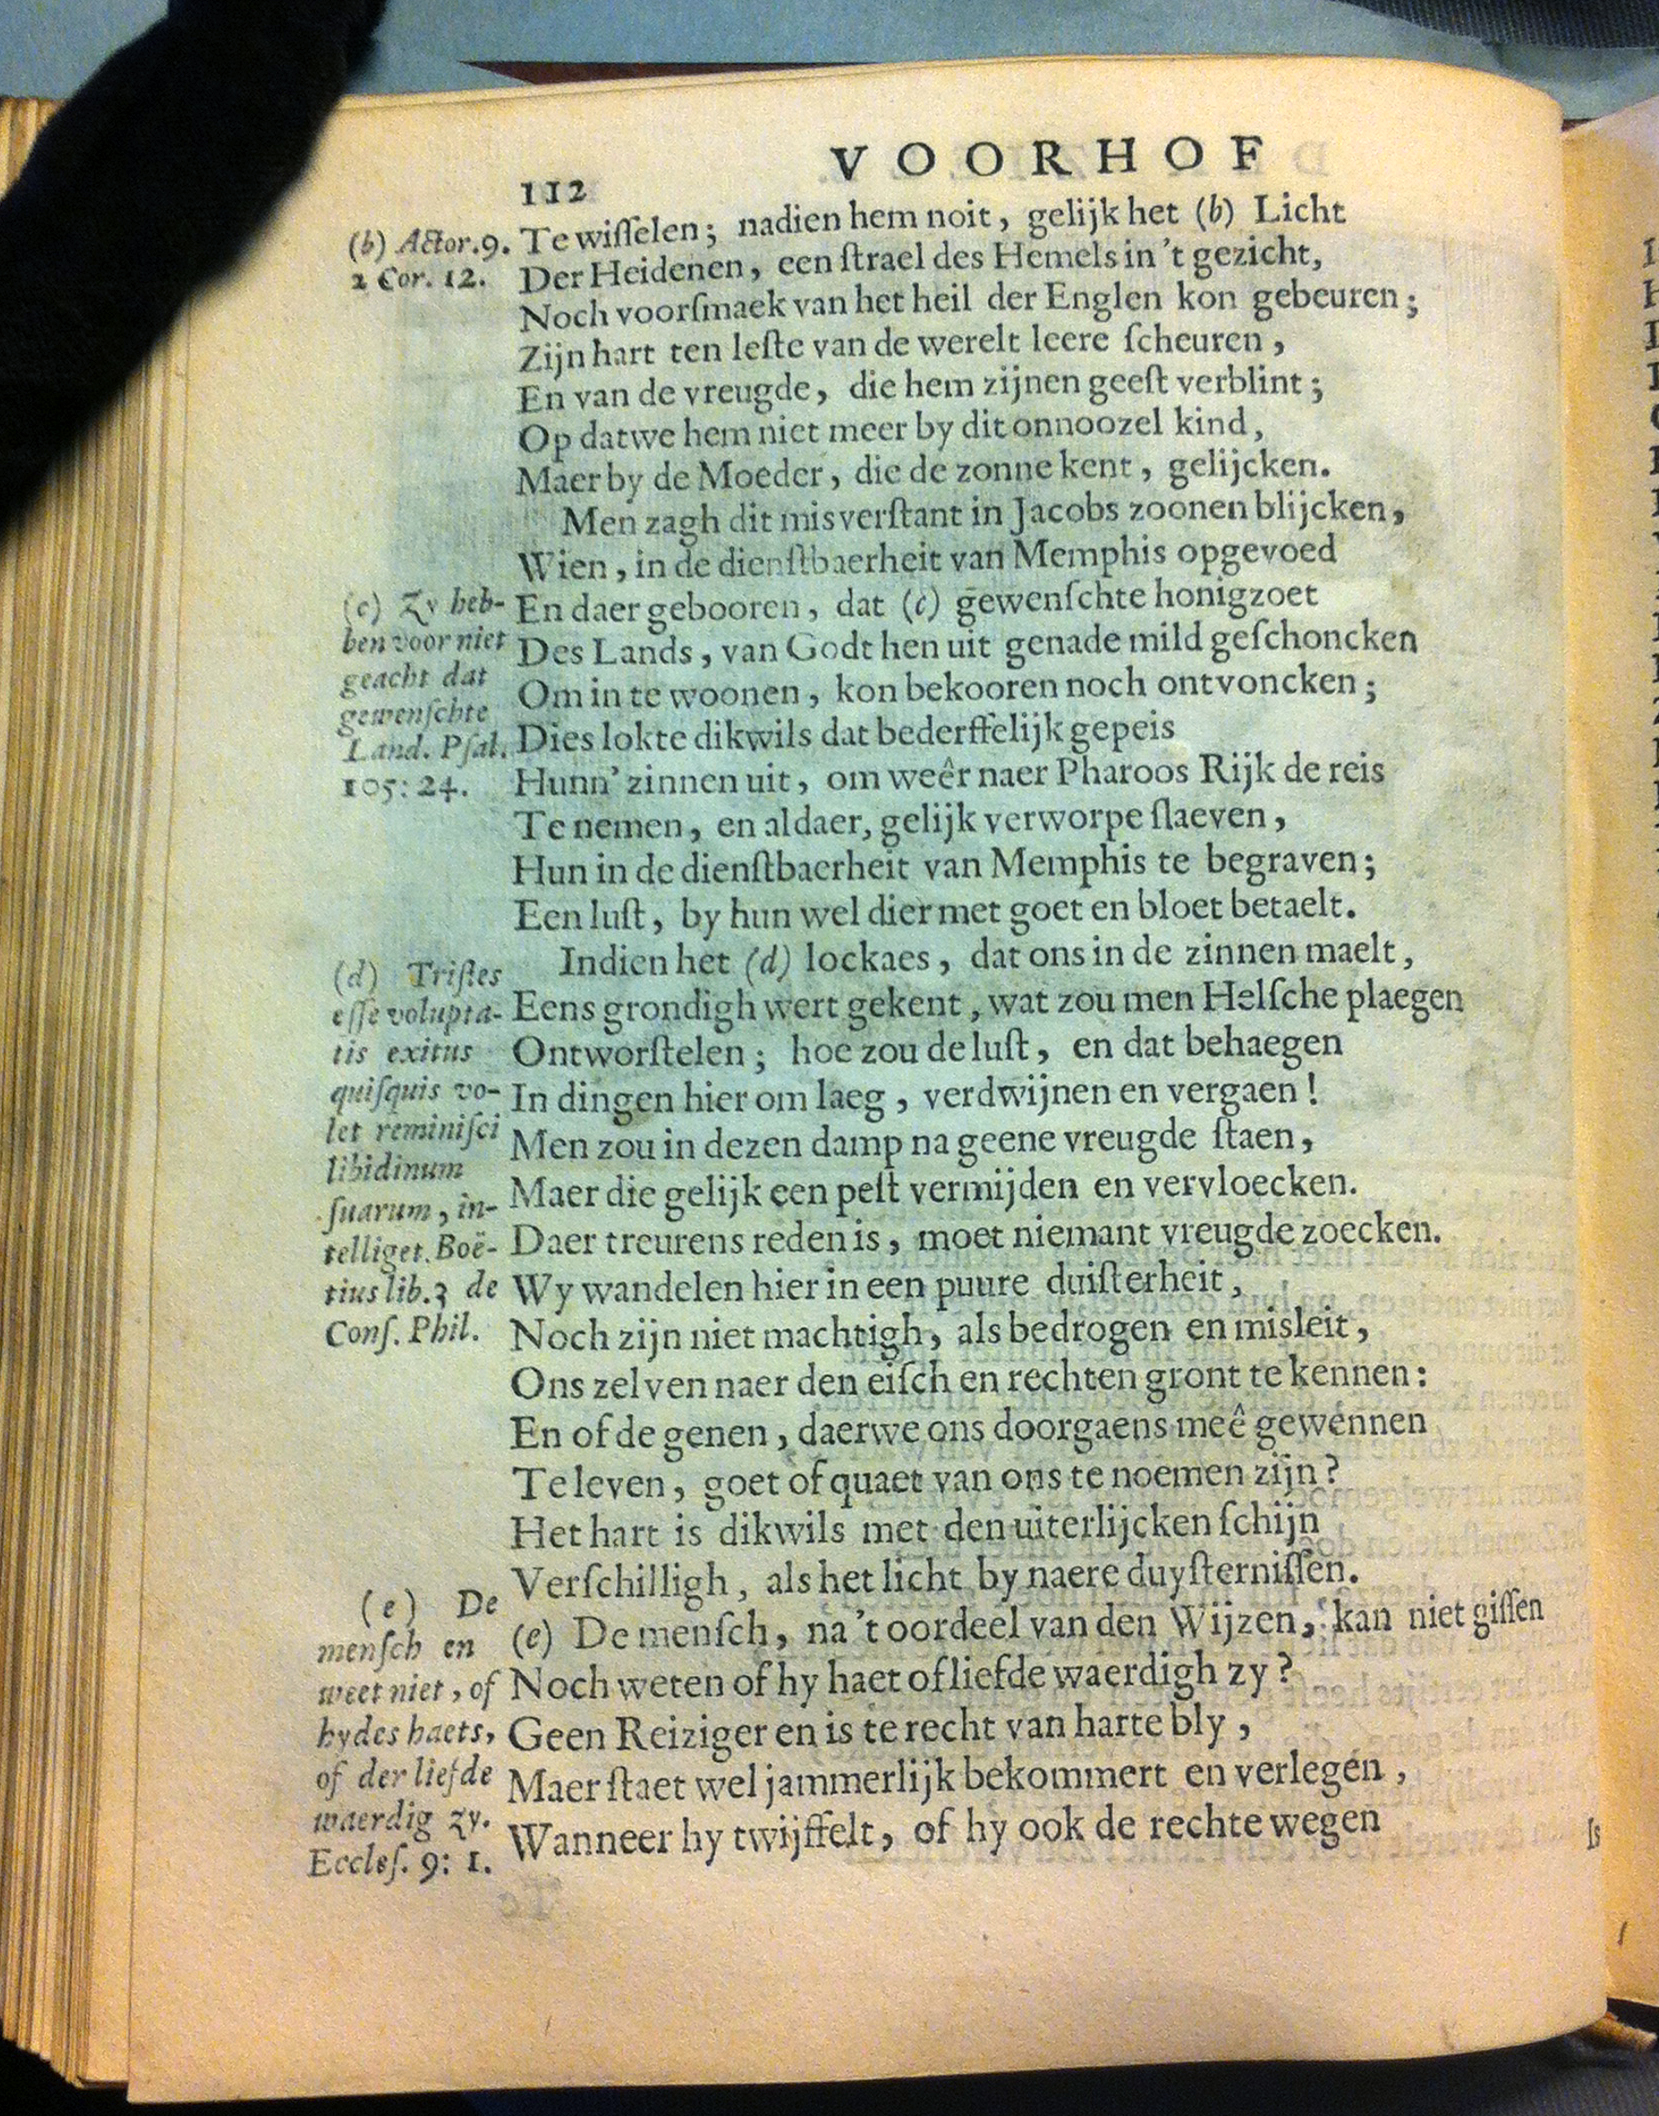 VOORHOF
112
(b) Actor. 9.
2 Cor. 12.
Te wiſſelen; nadien hem noit, gelijk het (b) Licht
Der Heidenen, een ſtrael des Hemels in 't gezicht,
Noch voorſmaek van het heil der Englen kon gebeuren;
Zijn hart ten leſte van de werelt leere ſcheuren,
En van de vreugde, die hem zijnen geeſt verblint;
Op datwe hem niet meer by dit onnoozel kind,
Maer by de Moeder, die de zonne kent, gelijcken.
Men zagh dit misverſtant in Jacobs zoonen blijcken,
Wien, in de dienſtbaerheit van Memphis opgevoed
(c) Zy heb-
ben voor niet
geacht dat
gewenſchte
Land. Pſal.
105: 24.
En daer gebooren, dat (c) gewenſchte honigzoet
Des Lands, van Godt hen uit genade mild geſchoncken
Om in te woonen, kon bekooren noch ontvoncken;
Dies lokte dikwils dat bederffelijk gepeis
Hunn' zinnen uit, om weêr naer Pharoos Rijk de reis
Te nemen, en aldaer, gelijk verworpe ſlaeven,
Hun in de dienſtbaerheit van Memphis te begraven;
Een luſt, by hun wel dier met goet en bloet betaelt.
(d) Triſtes
eſſe volupta-
tis exitus
quiſquis vo-
let reminiſci
libidinum
ſuarum, in-
telliget. Boë-
tius lib. 3 de
Conſ. Phil.
Indien het (d) lockaes, dat ons in de zinnen maelt,
Eens grondigh wert gekent, wat zou men Helſche plaegen
Ontworſtelen; hoe zou de luſt, en dat behaegen
In dingen hier om laeg, verdwijnen en vergaen!
Men zou in dezen damp na geene vreugde ſtaen,
Maer die gelijk een peſt vermijden en vervloecken.
Daer treurens reden is, moet niemant vreugde zoecken.
Wy wandelen hier in een puure duiſterheit,
Noch zijn niet machtigh, als bedrogen en misleit,
Ons zelven naer den eiſch en rechten gront te kennen:
En of de genen, daerwe ons doorgaens meê gewennen
Te leven, goet of quaet van ons te noemen zijn?
Het hart is dikwils met den uiterlijcken ſchijn
Verſchilligh, als het licht by naere duyſterniſſen.
(e) De
menſch en
weet niet, of
hy des haets,
of der liefde
waerdig zy.
Eccleſ. 9: 1.
(e) De menſch, na 't oordeel van den Wijzen, kan niet giſſen
Noch weten of hy haet of liefde waerdigh zy?
Geen Reiziger en is te recht van harte bly,
Maer ſtaet wel jammerlijk bekommert en verlegen,
Wanneer hy twijffelt, of hy ook de rechte wegen
Is